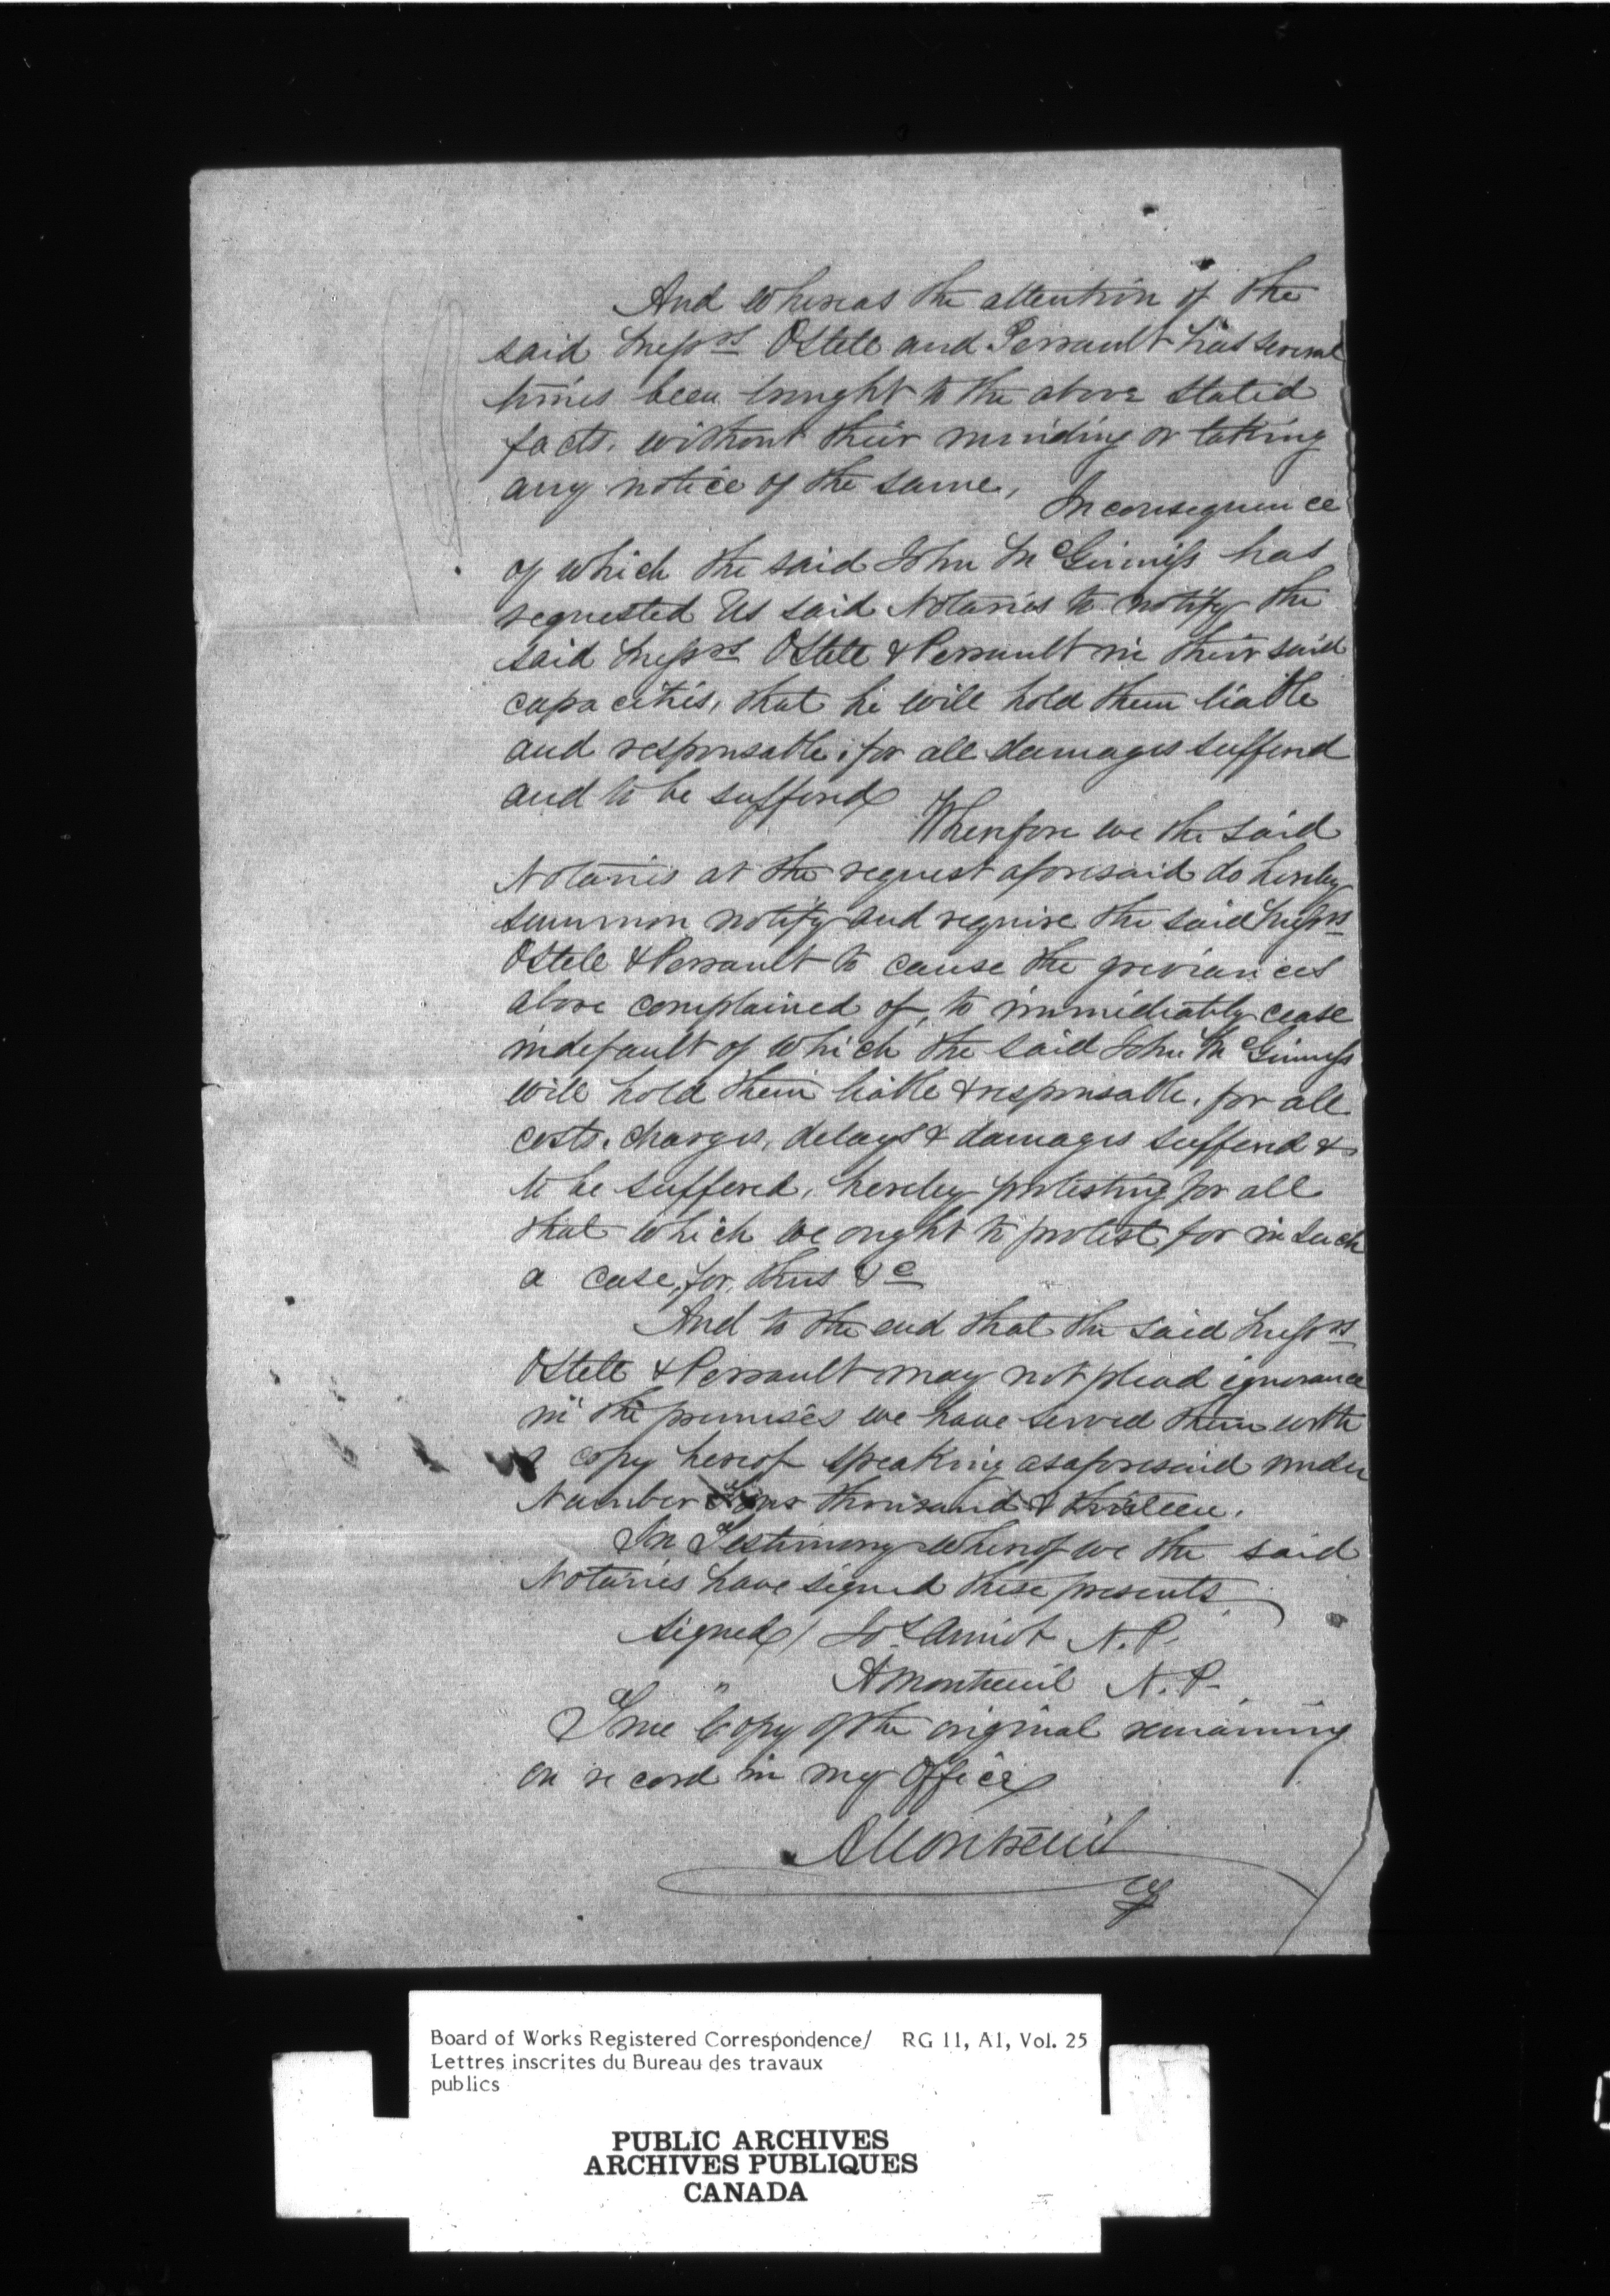 And whereas the attention of the
said Messrs Ostell and Perrault has several
times been brought to the above stated
facts, without their minding or taking
any notice of the same,
In consequence
of which the said John McGinniss has
requested Us said Notaries to notify the
said Messrs Ostell & Perrault in their said
capacities, that he will hold them liable
and responsable, for all damages suffered
and to be suffered
Wherefore we the said
Notaries at the request aforesaid do hereby
summon notify and require the said Messrs
Ostell & Perrault to cause the greviances
above complained of, to immediatly cease
in default of which the said John McGinniss
will hold them liable & responsable, for all
costs, charges, delays & damages suffered &
to be suffered, hereby protesting for all
that which we ought to protest for in such
a case, for, thus &c
And to the end that the said Messrs
Ostell & Perrault may not plead ignorance
in the premises we have served them with
a copy hereof speaking as aforesaid under
Number one thousand & thirteen.
In Testimony whereof we the said
Notaries have signed these presents
Signed / Jos Amiot N. P.
" A Montreuil N. P.
True Copy of the original remaining
on record in my Office
A Montreuil
Board of Works Registered Correspondence/ RG 11, A1, Vol. 25
Lettres inscrites du Bureau des travaux
publics
PUBLIC ARCHIVES
ARCHIVES PUBLIQUES
CANADA